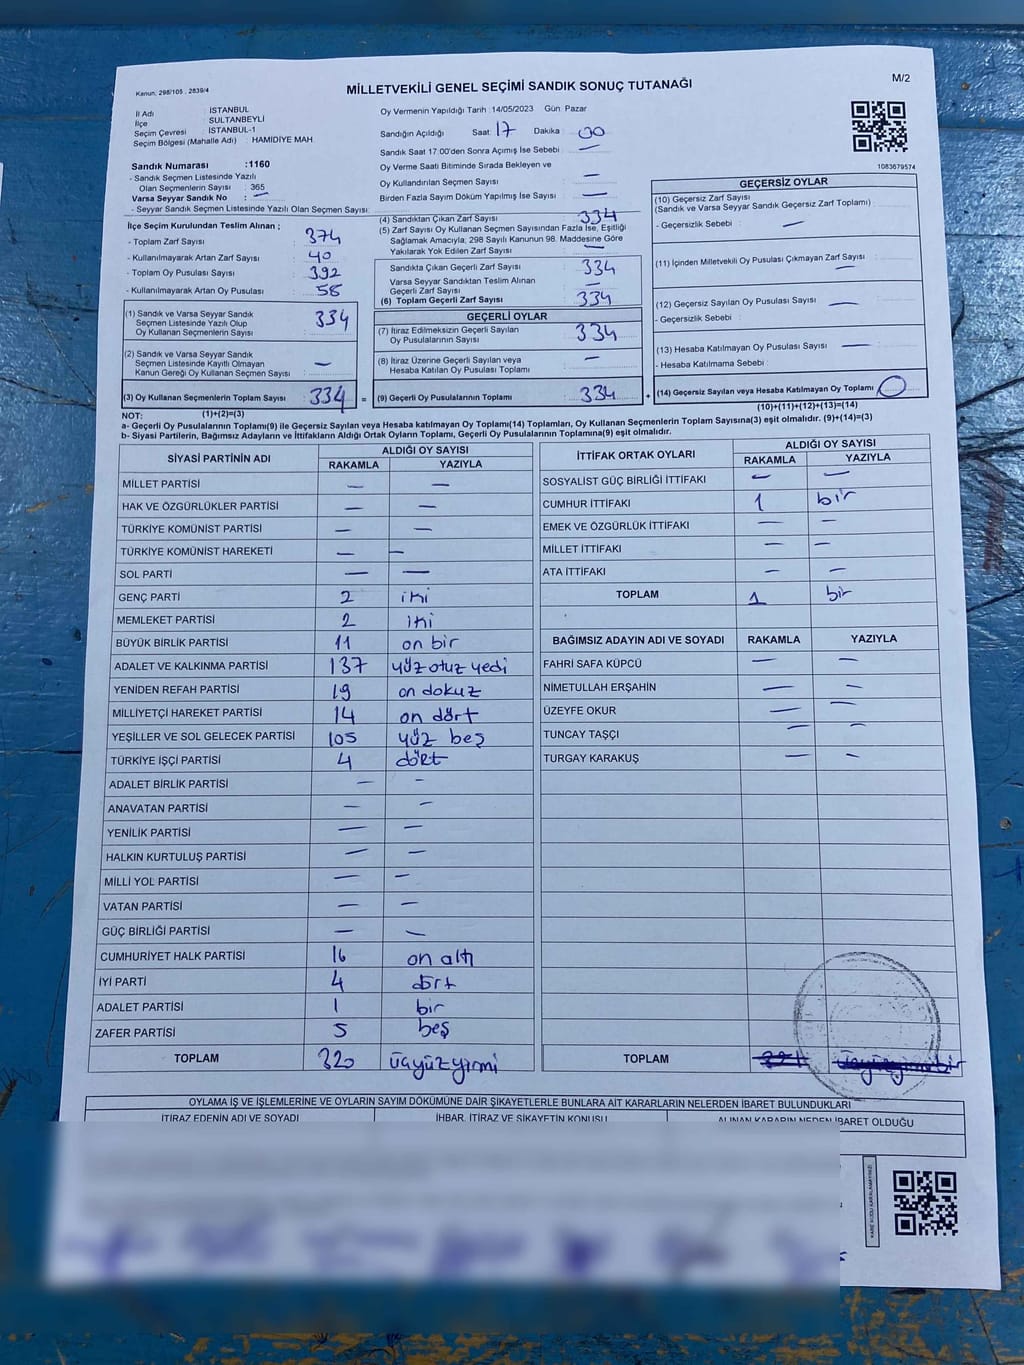 Kanun: 298/105 , 2839/4
MİLLETVEKİLİ GENEL SEÇİMİ SANDIK SONUÇ TUTANAĞI
M/2
İl Adı : İSTANBUL
İlçe SULTANBEYLİ
Seçim Çevresi : İSTANBUL-1
Seçim Bölgesi (Mahalle Adı) : HAMİDİYE MAH
Sandık Numarası :1160
- Sandık Seçmen Listesinde Yazılı
Olan Seçmenlerin Sayısı : 365
Varsa Seyyar Sandık No : —
- Seyyar Sandık Seçmen Listesinde Yazılı Olan Seçmen Sayısı:
Oy Vermenin Yapıldığı Tarih :14/05/2023 Gün Pazar
Sandığın Açıldığı Saat: 17 Dakika 00
Sandık Saat 17:00'den Sonra Açımış İse Sebebi : —
Oy Verme Saati Bitiminde Sırada Bekleyen ve
Oy Kullandırılan Seçmen Sayısı : —
Birden Fazla Sayım Döküm Yapılmış İse Sayısı : —
1083679574
İlçe Seçim Kurulundan Teslim Alınan ;
- Toplam Zarf Sayısı : 374
- Kullanılmayarak Artan Zarf Sayısı : 40
- Toplam Oy Pusulası Sayısı : 392
- Kullanılmayarak Artan Oy Pusulası : 58
(1) Sandık ve Varsa Seyyar Sandık
Seçmen Listesinde Yazılı Olup
Oy Kullanan Seçmenlerin Sayısı : 334
(2) Sandık ve Varsa Seyyar Sandık
Seçmen Listesinde Kayıtlı Olmayan
Kanun Gereği Oy Kullanan Seçmen Sayısı : —
(3) Oy Kullanan Seçmenlerin Toplam Sayısı : 334 =
(1)+(2)=(3)
(4) Sandıktan Çıkan Zarf Sayısı : 334
(5) Zarf Sayısı Oy Kullanan Seçmen Sayısından Fazla İse, Eşitliği
Sağlamak Amacıyla, 298 Sayılı Kanunun 98. Maddesine Göre
Yakılarak Yok Edilen Zarf Sayısı : —
Sandıkta Çıkan Geçerli Zarf Sayısı : 334
Varsa Seyyar Sandıktan Teslim Alınan
Geçerli Zarf Sayısı : —
(6) Toplam Geçerli Zarf Sayısı : 334
GEÇERLİ OYLAR
(7) İtiraz Edilmeksizin Geçerli Sayılan
Oy Pusulalarının Sayısı : 334
(8) İtiraz Üzerine Geçerli Sayılan veya
Hesaba Katılan Oy Pusulası Toplamı : —
(9) Geçerli Oy Pusulalarının Toplamı : 334 +
GEÇERSİZ OYLAR
(10) Geçersiz Zarf Sayısı
(Sandık ve Varsa Seyyar Sandık Geçersiz Zarf Toplamı) :
- Geçersizlik Sebebi : —
(11) İçinden Milletvekili Oy Pusulası Çıkmayan Zarf Sayısı : —
(12) Geçersiz Sayılan Oy Pusulası Sayısı : —
- Geçersizlik Sebebi :
(13) Hesaba Katılmayan Oy Pusulası Sayısı : —
- Hesaba Katılmama Sebebi :
(14) Geçersiz Sayılan veya Hesaba Katılmayan Oy Toplamı : 0
(10)+(11)+(12)+(13)=(14)
NOT:
a- Geçerli Oy Pusulasının Toplamı(9) ile Geçersiz Sayılan veya Hesaba katılmayan Oy Toplamı(14) Toplamları, Oy Kullanan Seçmenlerin Toplam Sayısına(3) eşit olmalıdır. (9)+(14)=(3)
b- Siyasi Partilerin, Bağımsız Adayların ve İttifakların Aldığı Ortak Oyların Toplamı, Geçerli Oy Pusulalarının Toplamına(9) eşit olmalıdır.
SİYASİ PARTİNİN ADI ALDIĞI OY SAYISI
RAKAMLA YAZIYLA
MİLLET PARTİSİ — —
HAK VE ÖZGÜRLÜKLER PARTİSİ — —
TÜRKİYE KOMÜNİST PARTİSİ — —
TÜRKİYE KOMÜNİST HAREKETİ — —
SOL PARTİ — —
GENÇ PARTİ 2 iki
MEMLEKET PARTİSİ 2 iki
BÜYÜK BİRLİK PARTİSİ 11 on bir
ADALET VE KALKINMA PARTİSİ 137 yüz otuz yedi
YENİDEN REFAH PARTİSİ 19 on dokuz
MİLLİYETÇİ HAREKET PARTİSİ 14 on dört
YEŞİLLER VE SOL GELECEK PARTİSİ 105 yüz beş
TÜRKİYE İŞÇİ PARTİSİ 4 dört
ADALET BİRLİK PARTİSİ — —
ANAVATAN PARTİSİ — —
YENİLİK PARTİSİ — —
HALKIN KURTULUŞ PARTİSİ — —
MİLLİ YOL PARTİSİ — —
VATAN PARTİSİ — —
GÜÇ BİRLİĞİ PARTİSİ — —
CUMHURİYET HALK PARTİSİ 16 on altı
İYİ PARTİ 4 dört
ADALET PARTİSİ 1 bir
ZAFER PARTİSİ 5 beş
TOPLAM 320 üçyüzyirmi
İTTİFAK ORTAK OYLARI ALDIĞI OY SAYISI
RAKAMLA YAZIYLA
SOSYALİST GÜÇ BİRLİĞİ İTTİFAKI — —
CUMHUR İTTİFAKI 1 bir
EMEK VE ÖZGÜRLÜK İTTİFAKI — —
MİLLET İTTİFAKI — —
ATA İTTİFAKI — —
TOPLAM 1 bir
BAĞIMSIZ ADAYIN ADI VE SOYADI RAKAMLA YAZIYLA
FAHRİ SAFA KÜPCÜ — —
NİMETULLAH ERŞAHİN — —
ÜZEYFE OKUR — —
TUNCAY TAŞÇI — —
TURGAY KARAKUŞ — —
TOPLAM 321 üçyüzyirmibir
OYLAMA İŞ VE İŞLEMLERİNE VE OYLARIN SAYIM DÖKÜMÜNE DAİR ŞİKAYETLERLE BUNLARA AİT KARARLARIN NELERDEN İBARET BULUNDUKLARI
İTİRAZ EDENİN ADI VE SOYADI İHBAR, İTİRAZ VE ŞİKAYETİN KONUSU ALINAN KARARIN NEDEN İBARET OLDUĞU